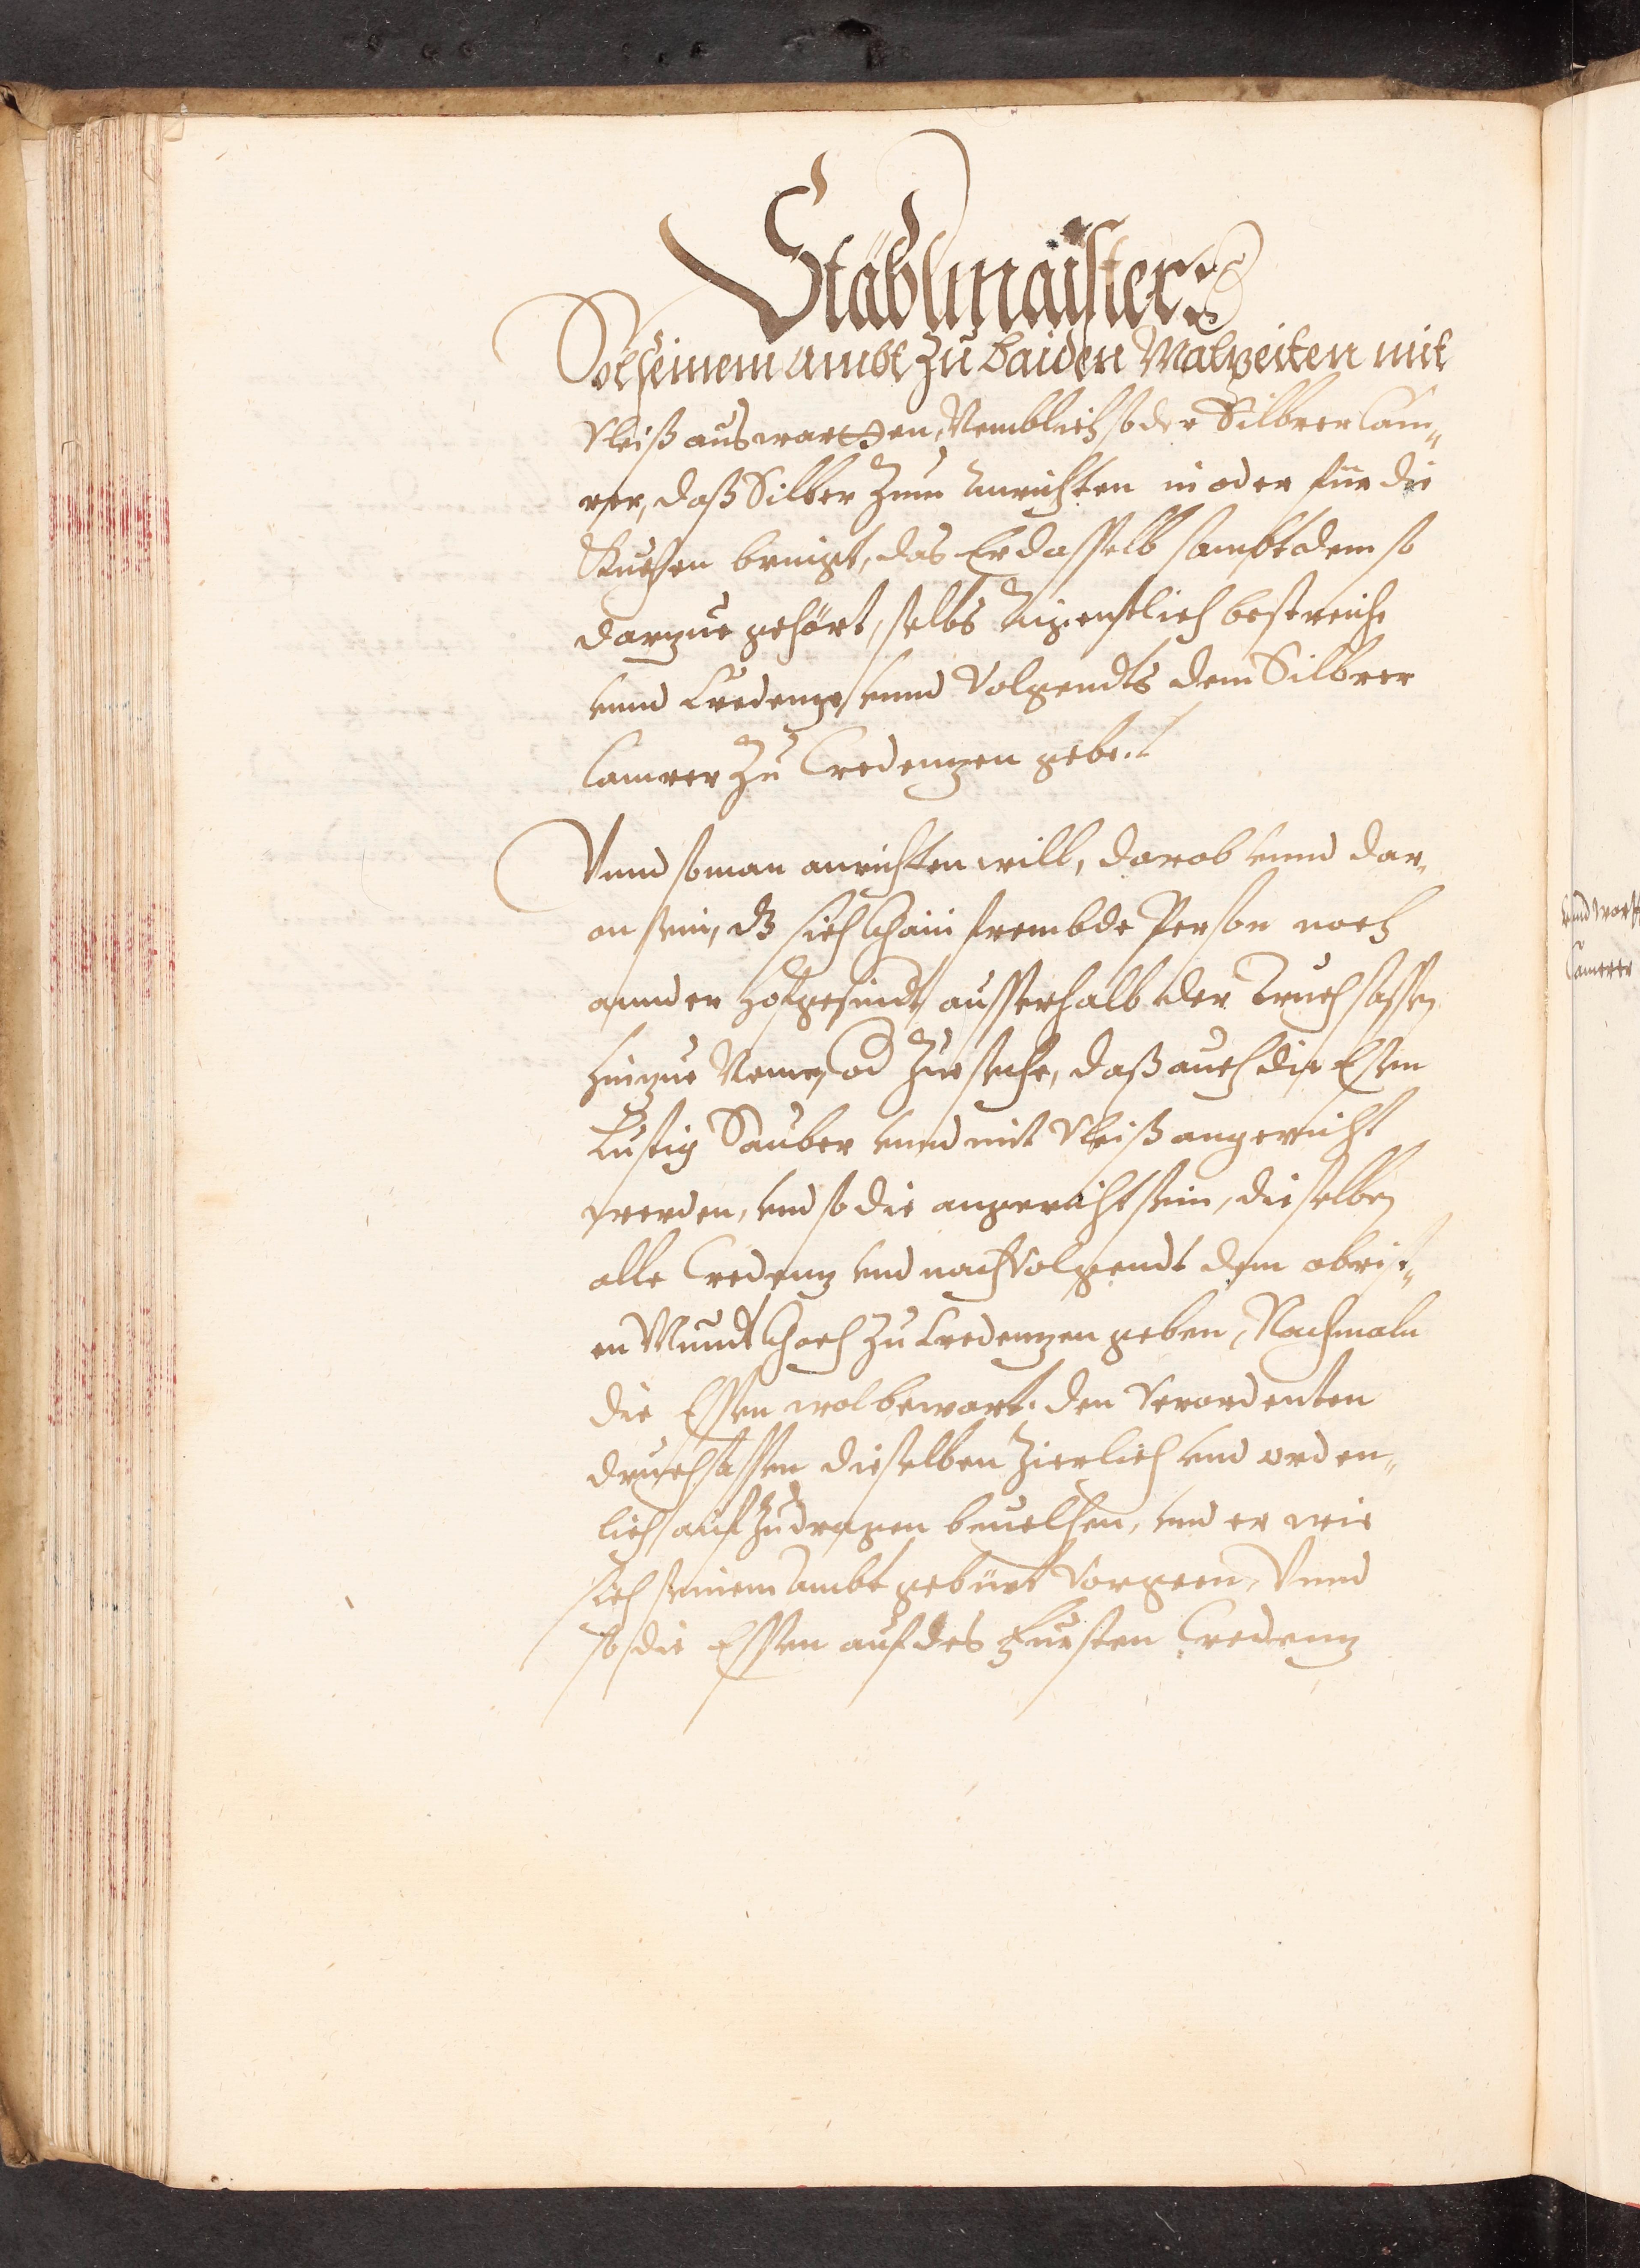 Stäblmaister
Sol seinem Ambt zu baiden Malzeiten mit
vleiß auswartten, Nemblich so der Silbrer Cam„
rer, daß Silber zum Anrichten in oder für die
Kuchen bringt, das Er dasselb sambt dem so
darzue gehört, selbs Aigenstlich bestreiche
vnnd Credenze vnnd Volgendts dem Silbrer
Camrer zu Credenzen gebe.
Vnnd so man anrichten will, darob vnnd dar„
an sein, dz sich khain frembde Person noch
annder Hofgesindt ausserhalb der Truchsassen
hinzue Neme, od zuesehe, daß auch die Essen
Lustig Sauber vnnd mit Vleiß angericht
werden, vnd so die angericht sein, dieselben
alle Credenz vnd nachvolgendt dem obrist„
en Mundtkhoch zu Credenzen geben, Nachmaln
die Essen wol bewart. den Verordenten
druchsassen dieselben zierlich vnd orden„
lich auf zudragen beuelhen, vnd er wie
sich seinem Ambt gebürt Vorgeen, Vnnd
so die Essen auf des Fürsten Credenz
vnnd
Camerer